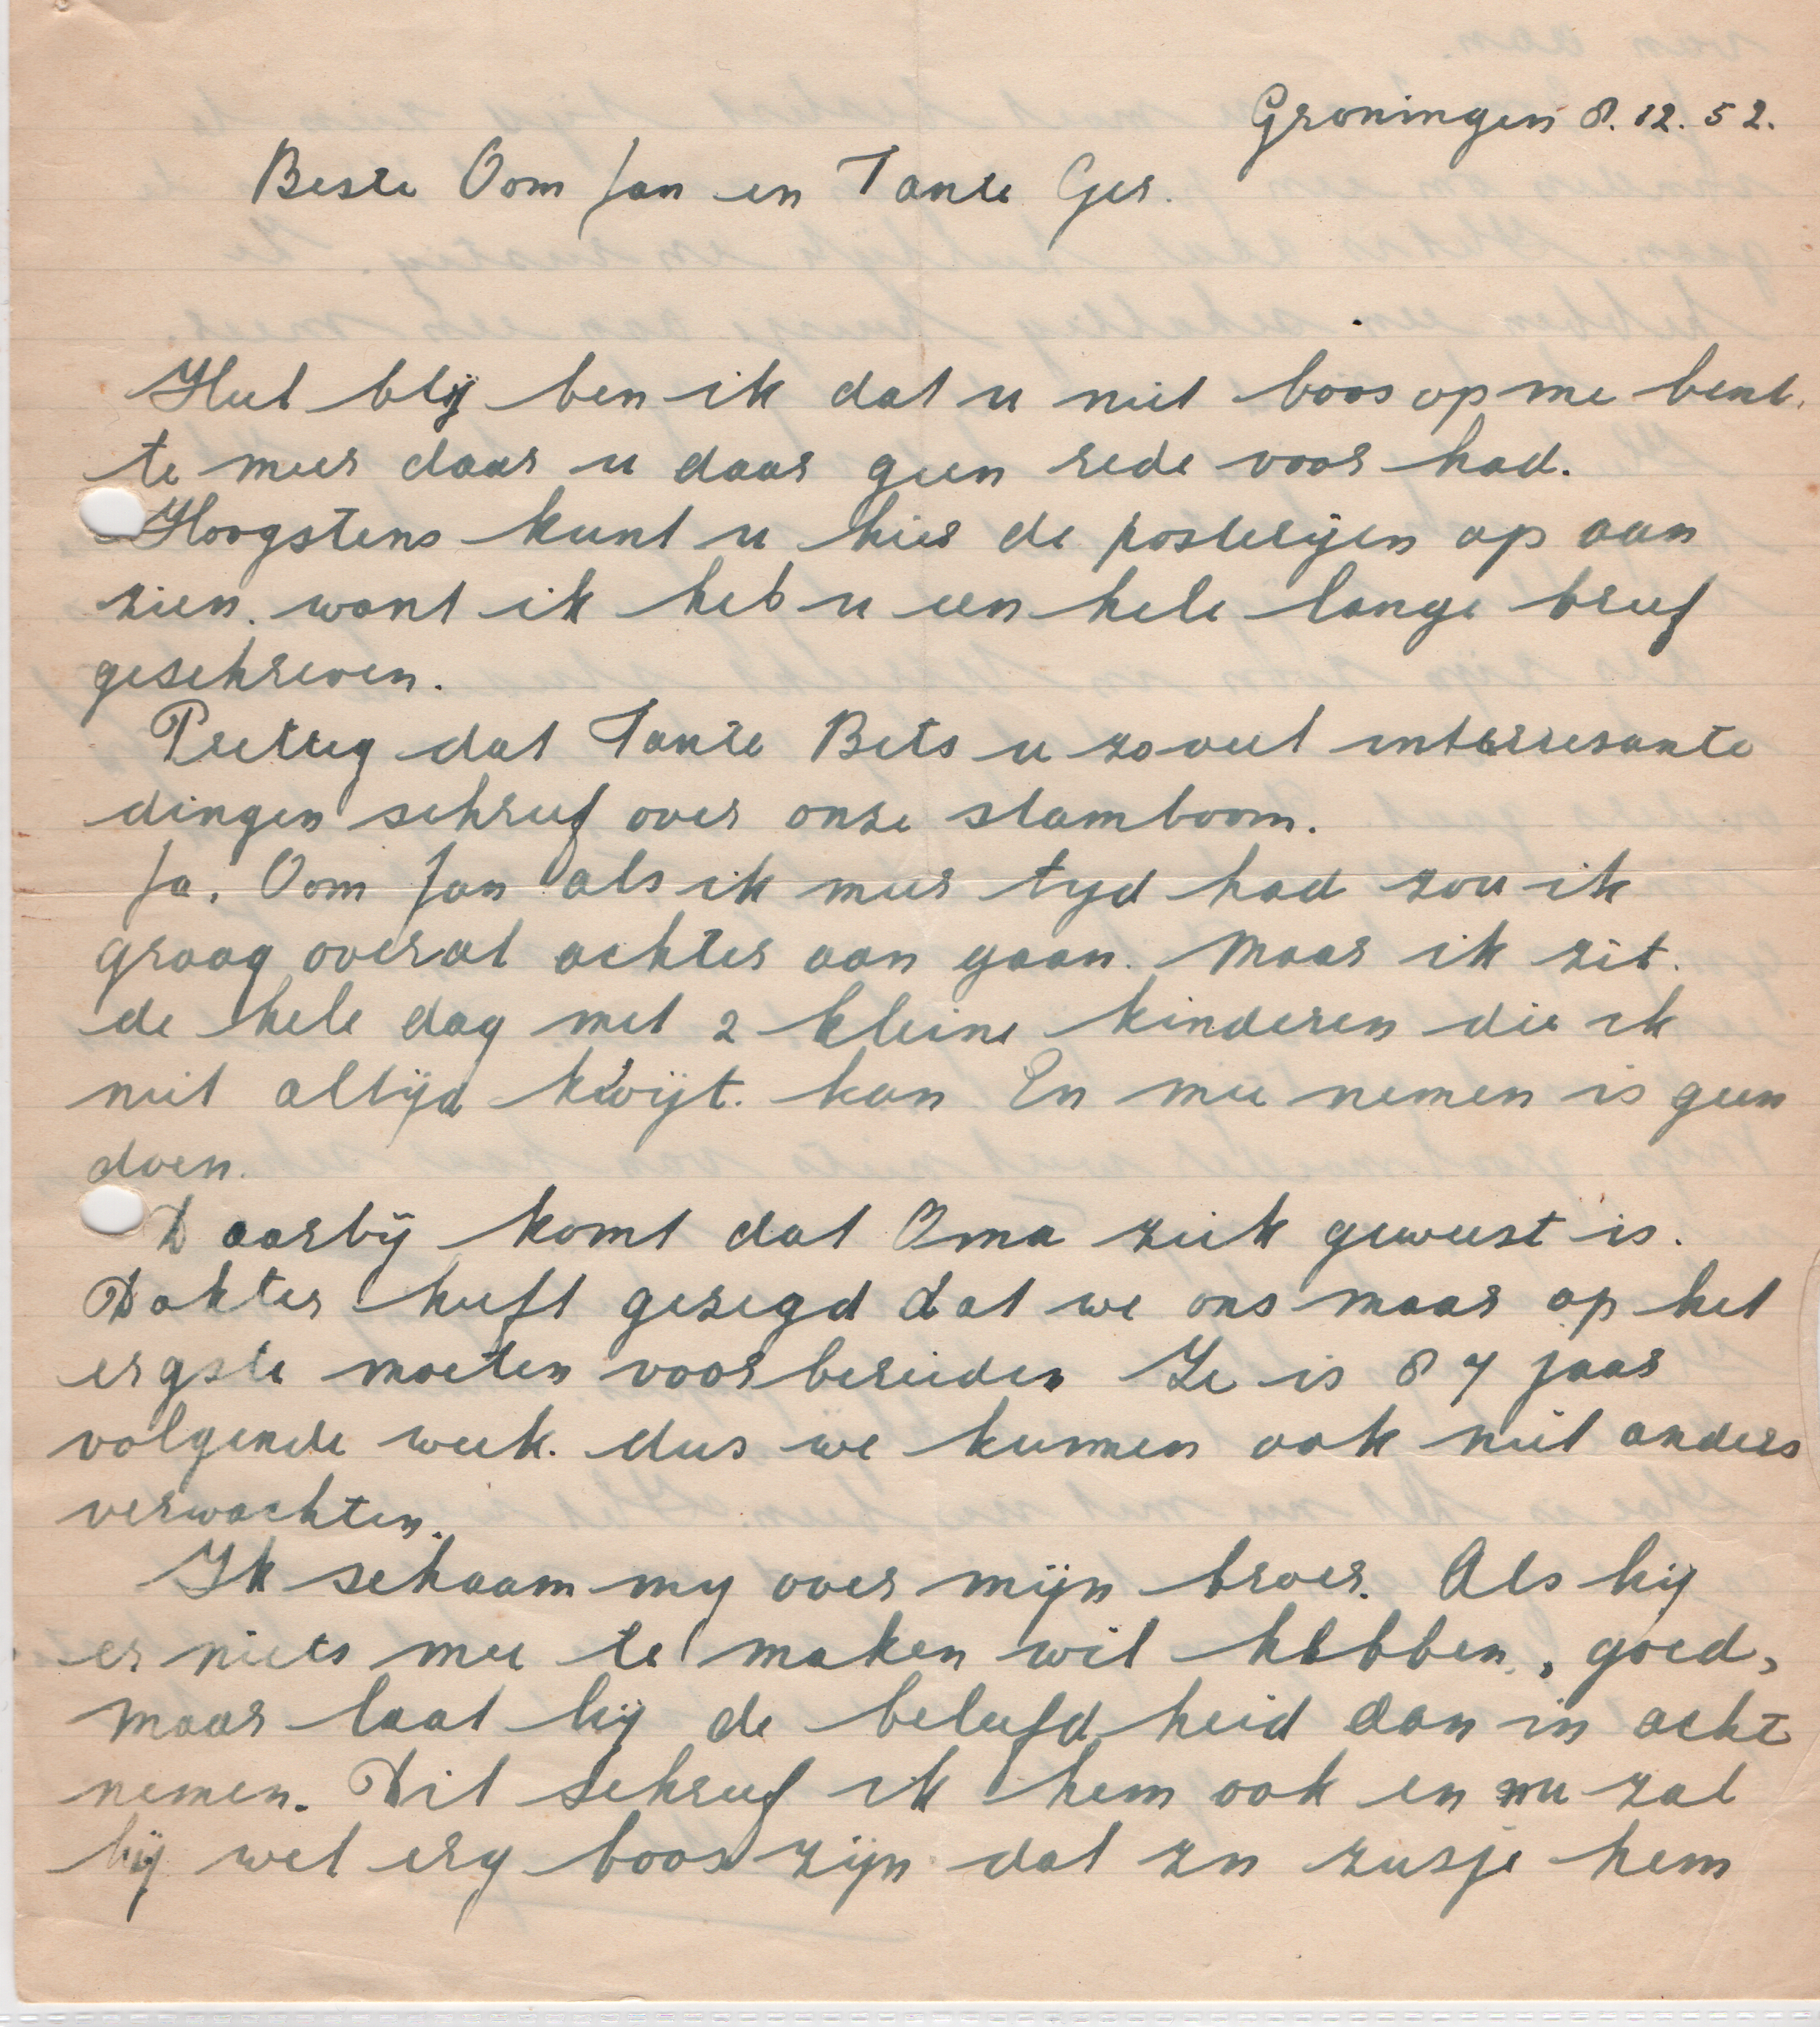 Groningen 8.12.52.
Beste Oom Jan en Tante Ger.
Heel blij ben ik dat u niet boos op me bent.
te meer daar u daar geen rede voor had.
Hoogstens kunt u hier de posterijen op aan
zien. want ik heb u een hele lange brief
geschreven.
Prettig dat Tante Bets u zoveel interresante
dingen schreef over onze stamboom.
Ja. Oom Jan als ik meer tyd had zou ik
graag overal achter aan gaan. Maar ik zit.
de hele dag met 2 kleine kinderen die ik
niet altijd kwijt. kan En mee nemen is geen
doen.
Daarbij komt dat Oma ziek geweest is.
Dokter heeft gezegd dat we ons maar op het
ergste moeten voorbereiden Ze is 87 jaar
volgende week. dus we kunnen ook niet anders
verwachten.
Ik schaam my over mijn broer. Als hij
er niets mee te maken wil hebben, goed,
maar laat hij de beleefdheid dan in acht
nemen. Dit schreef ik hem ook en nu zal
hij wel erg boos zijn dat zn zusje hem